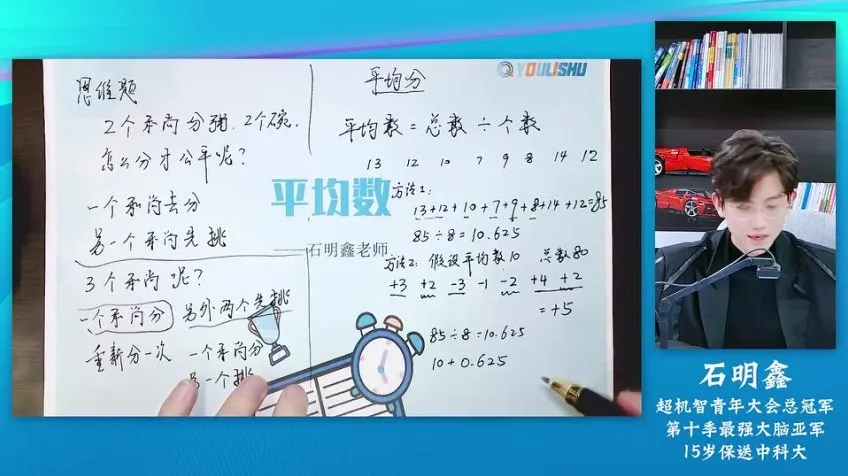 思维题
2个和尚分粥,2个碗,
怎么分才公平呢?
一个和尚去分
另一个和尚先挑
3个和尚呢?
一个和尚分 另外两个先挑
重新分一次 一个和尚分
另一个挑
YOULISHU
平均分
平均数=总数÷个数
13 12 10 7 9 8 14 12
方法1:
13+12+10+7+9+8+14+12=85
85÷8=10.625
方法2: 假设平均数10 总数80
+3 +2 -3 -1 -2 +4 +2
=+5
85÷8=10.625
10+0.625
平均数
——石明鑫老师
石明鑫
超机智青年大会总冠军
第十季最强大脑亚军
15岁保送中科大